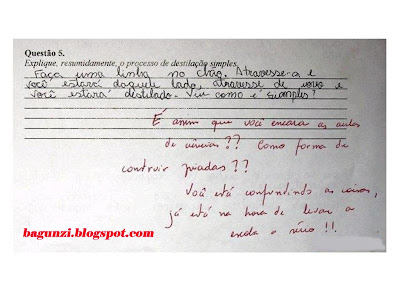 Questão 5.
Explique, resumidamente, o processo de destilação simples.
Faça uma linha no chão. Atravesse-a e
você estará daquele lado, atravesse de novo e
você estará destilado. Viu como é simples?
É assim que você encara as aulas
de ciências?? Como forma de
construir piadas??
Você está confundindo as coisas,
já está na hora de levar a
escola a sério!!
bagunzi.blogspot.com